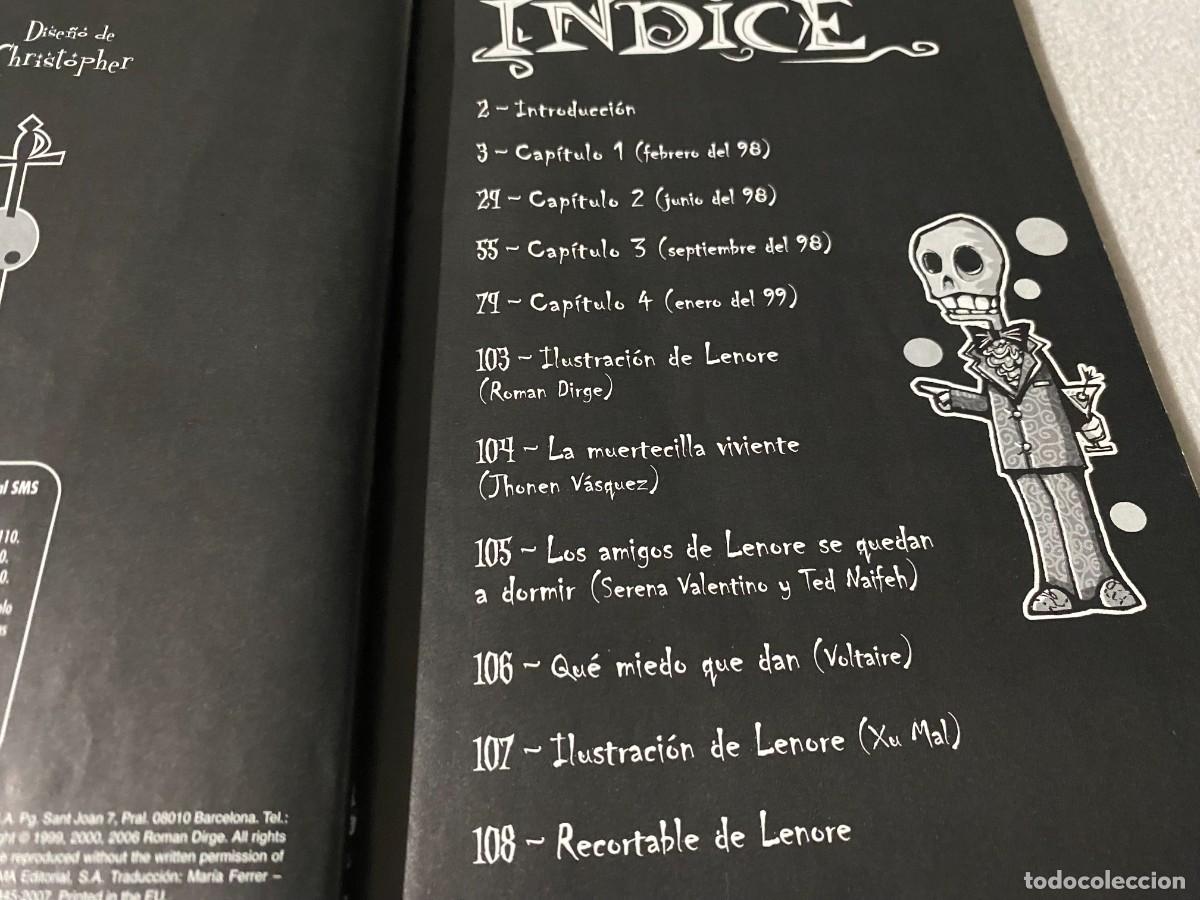 Diseño de
Christopher
al SMS
110.
0.
0.
A. Pg. Sant Joan 7, Pral. 08010 Barcelona. Tel.:
© 1999, 2000, 2006 Roman Dirge. All rights
reproduced without the written permission of
Editorial, S.A. Traducción: María Ferrer –
45-2007. Printed in the EU.
ÍNDICE
2 – Introducción
3 – Capítulo 1 (febrero del 98)
29 – Capítulo 2 (junio del 98)
55 – Capítulo 3 (septiembre del 98)
79 – Capítulo 4 (enero del 99)
103 – Ilustración de Lenore
(Roman Dirge)
104 – La muertecilla viviente
(Jhonen Vásquez)
105 – Los amigos de Lenore se quedan
a dormir (Serena Valentino y Ted Naifeh)
106 – Qué miedo que dan (Voltaire)
107 – Ilustración de Lenore (Xu Mal)
108 – Recortable de Lenore
todocoleccion